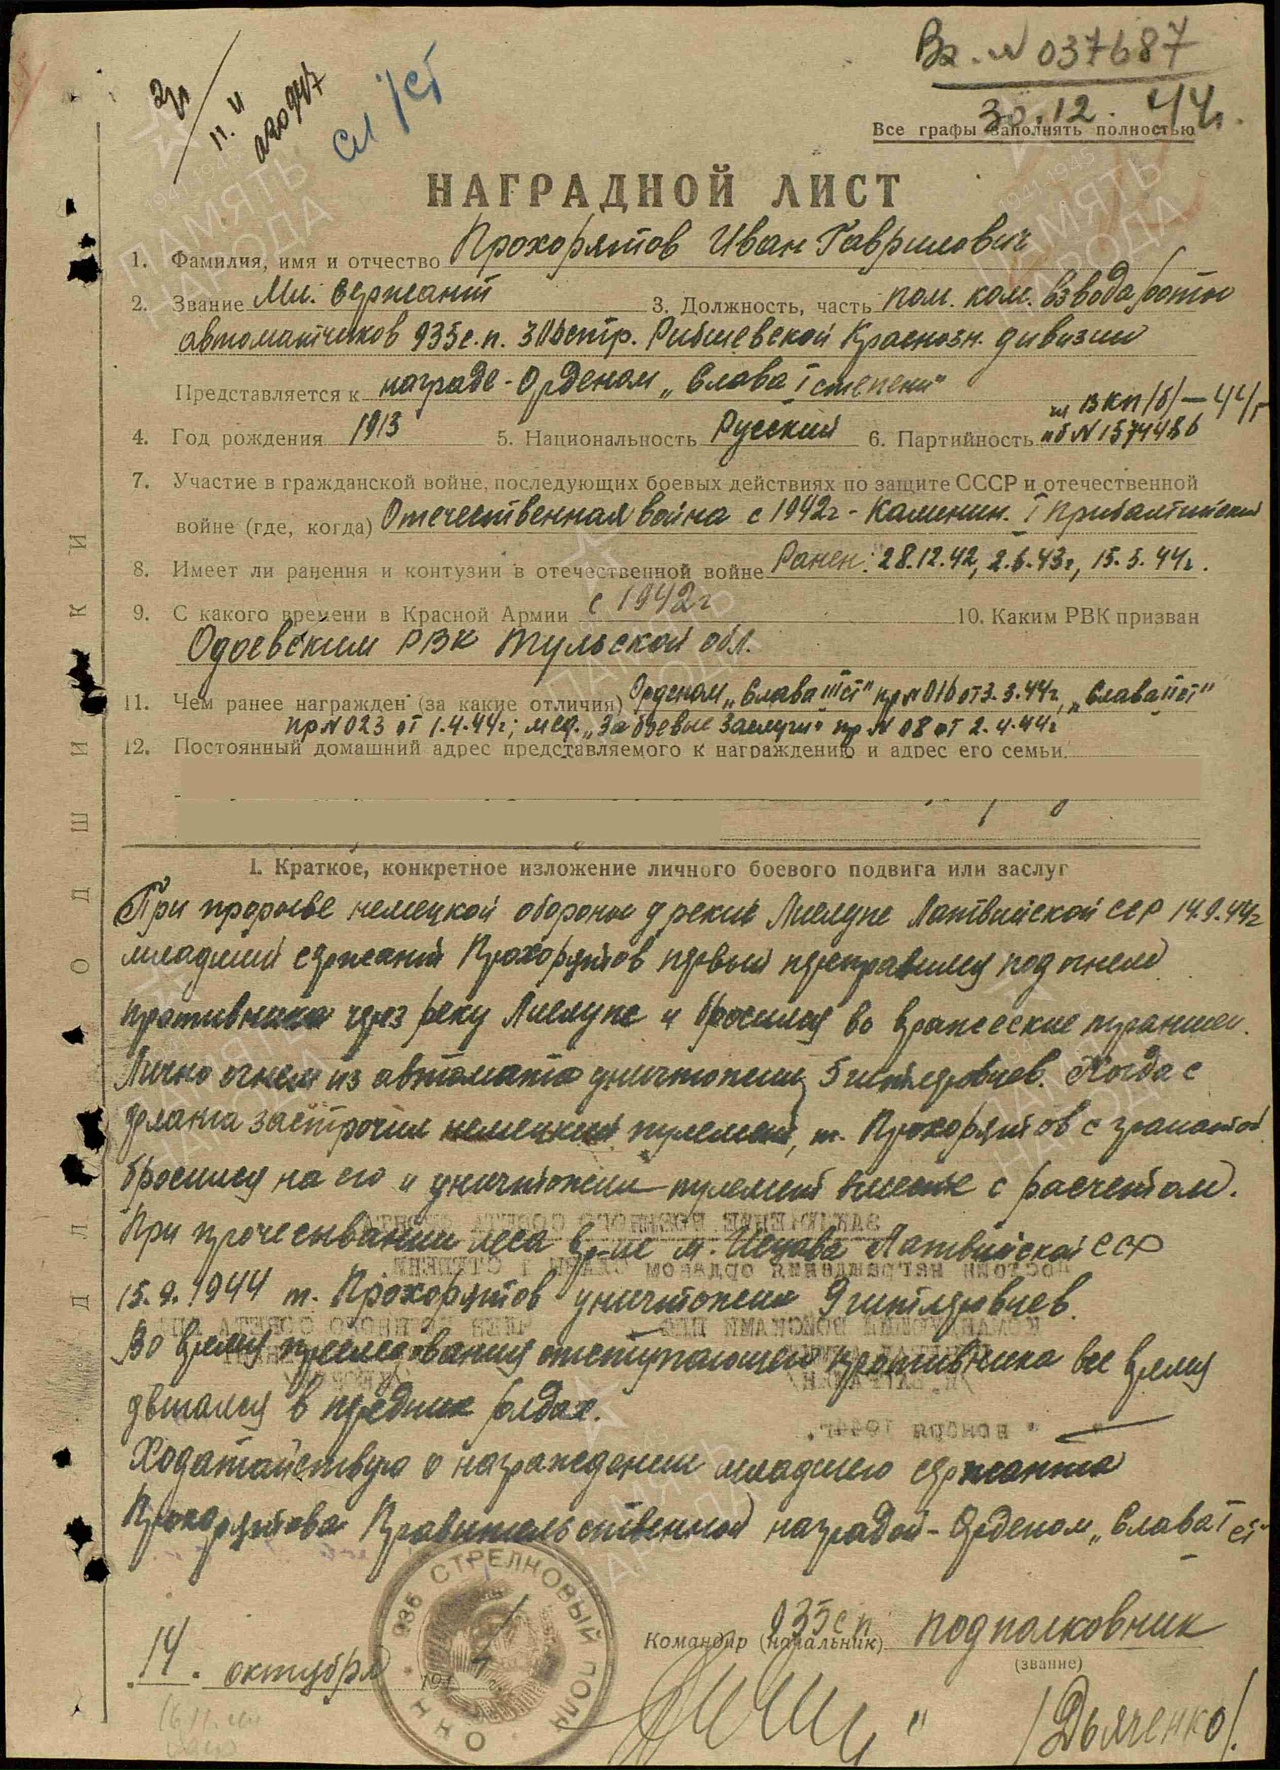 Вх. N 037687
30.12.44г.
Все графы заполнять полностью
НАГРАДНОЙ ЛИСТ
1. Фамилия, имя и отчество Прохорятов Иван Гаврилович
2. Звание Мл. сержант 3. Должность, часть пом. ком. взвода роты
автоматчиков 935 с.п. 306 стр. Рибшевской Краснозн. дивизии
Представляется к награде - Орденом „Слава I степени"
чл ВКП(б) — 44г
4. Год рождения 1913 5. Национальность Русский 6. Партийность п/б N 1574486
7. Участие в гражданской войне, последующих боевых действиях по защите СССР и отечественной
войне (где, когда) Отечественная война с 1942г - Калинин. I Прибалтийский
8. Имеет ли ранения и контузии в отечественной войне Ранен: 28.12.42, 2.6.43г, 15.5.44г.
9. С какого времени в Красной Армии с 1942г 10. Каким РВК призван
Одоевским РВК Тульской обл.
11. Чем ранее награжден (за какие отличия) Орденом „Слава III ст" пр N 016 от 3.3.44г, „Слава II ст"
пр N 023 от 1.4.44г; мед. „За боевые заслуги" пр N 08 от 2.4.44г
12. Постоянный домашний адрес представляемого к награждению и адрес его семьи.
I. Краткое, конкретное изложение личного боевого подвига или заслуг
При прорыве немецкой обороны у реки Лиелупе Латвийской ССР 14.9.44г
младший сержант Прохорятов первый переправился под огнем
противника через реку Лиелупе и бросился во вражеские траншеи.
Лично огнем из автомата уничтожил 5 гитлеровцев. Когда с
фланга застрочил немецкий пулемет, т. Прохорятов с гранатой
бросился на его и уничтожил пулемет вместе с расчетом.
При прочесывании леса в р-не м. Иецава Латвийской ССР
15.9.1944 т. Прохорятов уничтожил 9 гитлеровцев.
Во время преследования отступающего противника все время
двигался в передних рядах.
Ходатайствую о награждении младшего сержанта
Прохорятова Правительственной наградой - Орденом „Слава I ст
14. октября 194
935 СТРЕЛКОВЫЙ ПОЛК
Командир (начальник) 935 с п подполковник
(звание)
/Дьяченко/.
ПОДШИВКИ
ДЛЯ
ПАМЯТЬ
НАРОДА